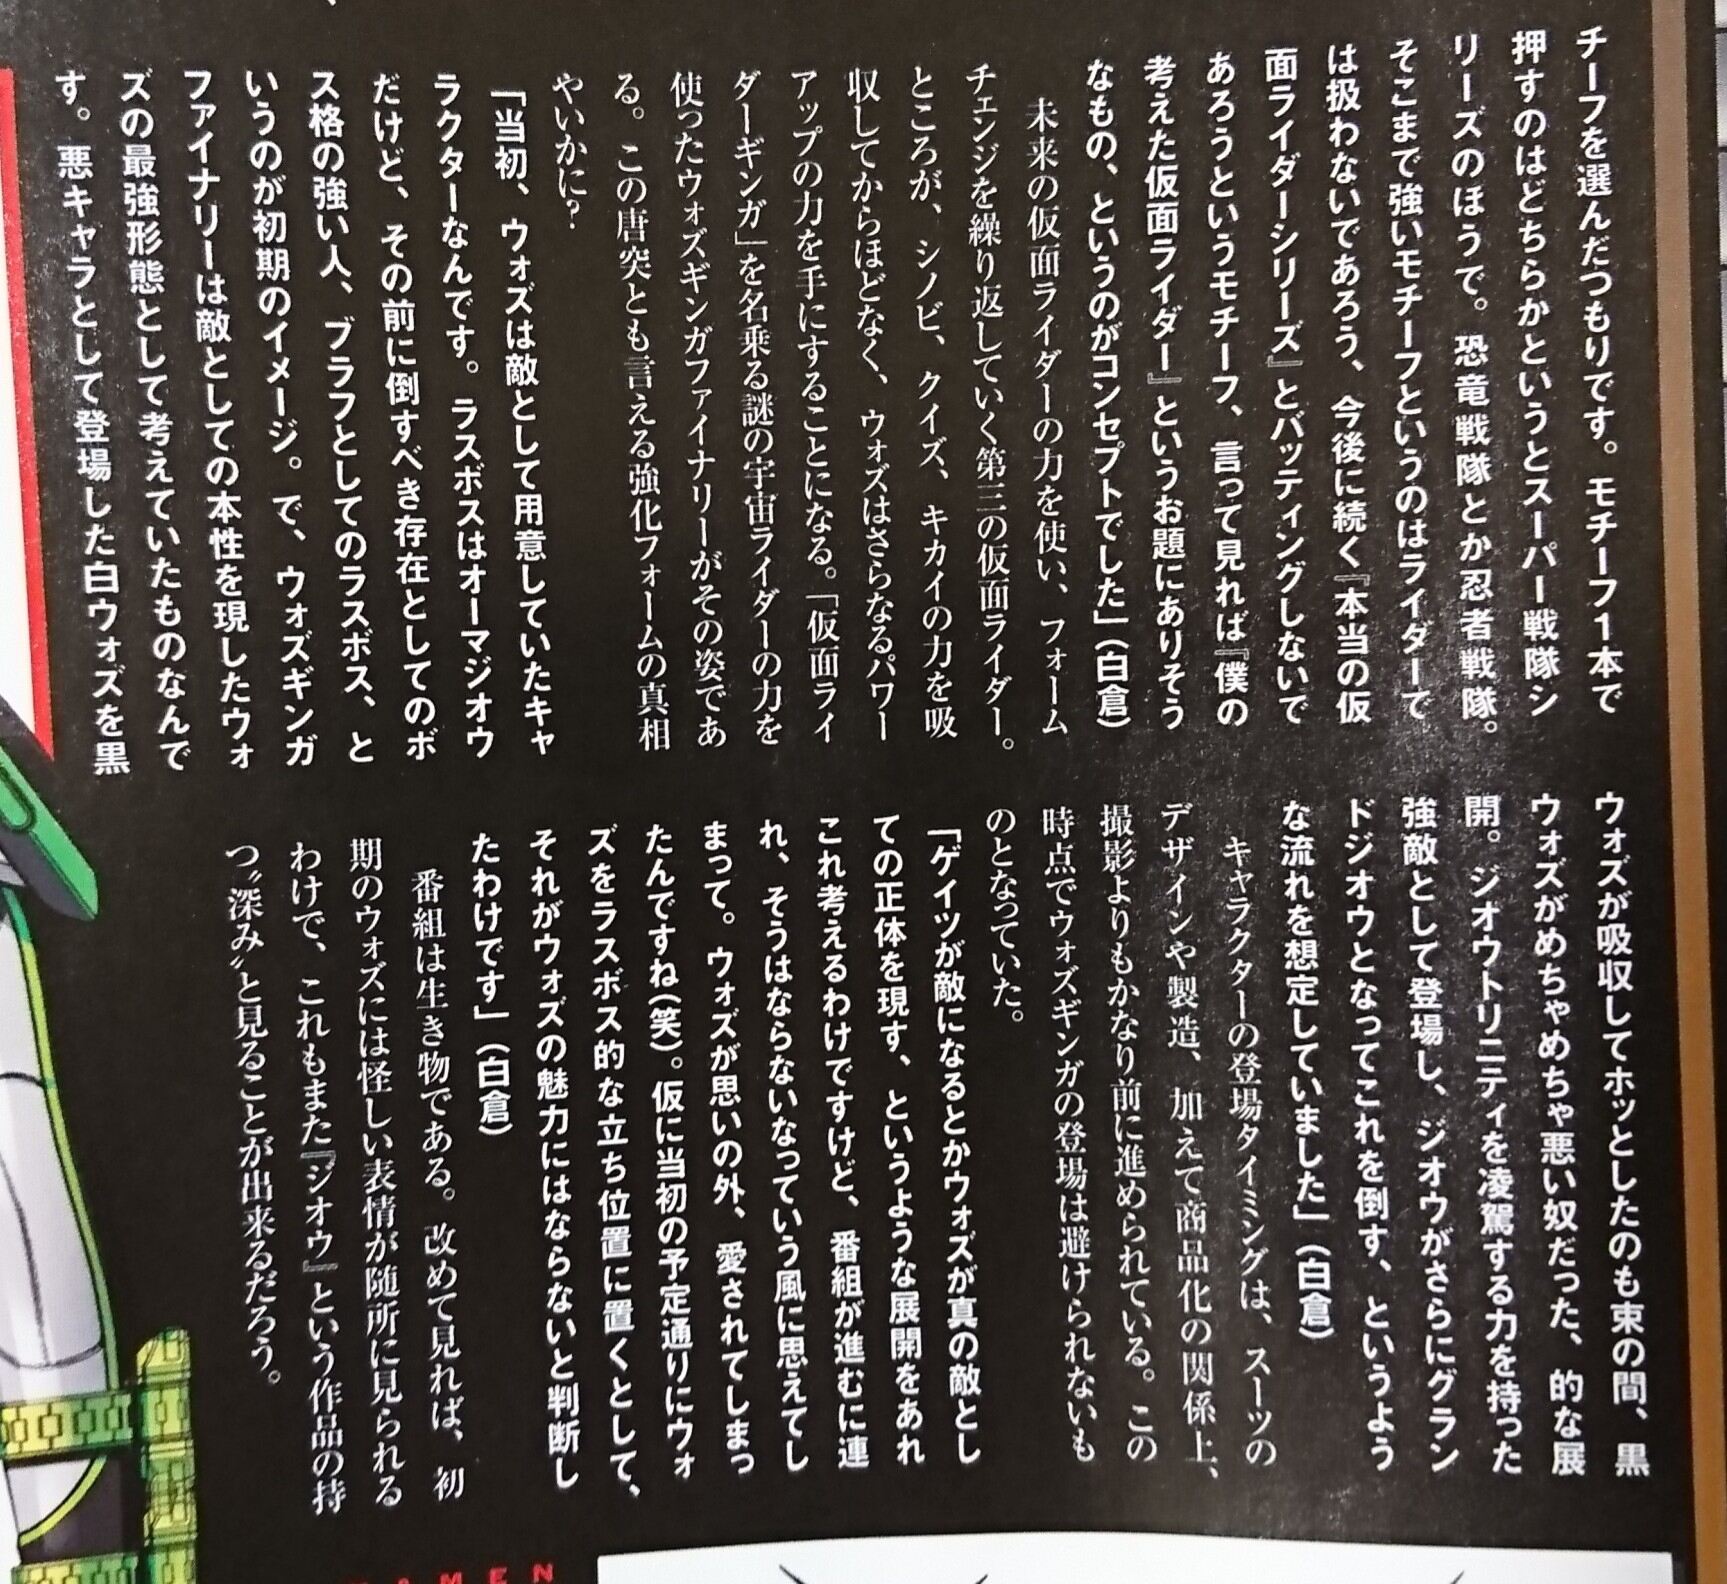 チーフを選んだつもりです。モチーフ1本で
押すのはどちらかというとスーパー戦隊シ
リーズのほうで。恐竜戦隊とか忍者戦隊。
そこまで強いモチーフというのはライダーで
は扱わないであろう、今後に続く『本当の仮
面ライダーシリーズ』とバッティングしないで
あろうというモチーフ、言って見れば『僕の
考えた仮面ライダー』というお題にありそう
なもの、というのがコンセプトでした」(白倉)
未来の仮面ライダーの力を使い、フォーム
チェンジを繰り返していく第三の仮面ライダー。
ところが、シノビ、クイズ、キカイの力を吸
収してからほどなく、ウォズはさらなるパワー
アップの力を手にすることになる。「仮面ライ
ダーギンガ」を名乗る謎の宇宙ライダーの力を
使ったウォズギンガファイナリーがその姿であ
る。この唐突とも言える強化フォームの真相
やいかに?
「当初、ウォズは敵として用意していたキャ
ラクターなんです。ラスボスはオーマジオウ
だけど、その前に倒すべき存在としてのボ
ス格の強い人、ブラフとしてのラスボス、と
いうのが初期のイメージ。で、ウォズギンガ
ファイナリーは敵としての本性を現したウォ
ズの最強形態として考えていたものなんで
す。悪キャラとして登場した白ウォズを黒
ウォズが吸収してホッとしたのも束の間、黒
ウォズがめちゃめちゃ悪い奴だった、的な展
開。ジオウトリニティを凌駕する力を持った
強敵として登場し、ジオウがさらにグラン
ドジオウとなってこれを倒す、というよう
な流れを想定していました」(白倉)
キャラクターの登場タイミングは、スーツの
デザインや製造、加えて商品化の関係上、
撮影よりもかなり前に進められている。この
時点でウォズギンガの登場は避けられないも
のとなっていた。
「ゲイツが敵になるとかウォズが真の敵とし
ての正体を現す、というような展開をあれ
これ考えるわけですけど、番組が進むに連
れ、そうはならないなっていう風に思えてし
まって。ウォズが思いの外、愛されてしまっ
たんですね(笑)。仮に当初の予定通りにウォ
ズをラスボス的な立ち位置に置くとして、
それがウォズの魅力にはならないと判断し
たわけです」(白倉)
番組は生き物である。改めて見れば、初
期のウォズには怪しい表情が随所に見られる
わけで、これもまた『ジオウ』という作品の持
つ〝深み〟と見ることが出来るだろう。
AMEN